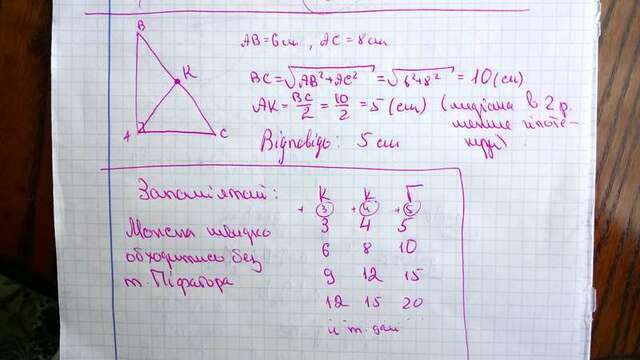 AB=6см, AC=8см
A
B
K
C
BC=√AB²+AC²=√6²+8²=10(см)
AK=BC/2=10/2=5(см) (медіана в 2 р.
менша гіпоте-
нузи)
Відповідь: 5см
Запам'ятай:
Можем швидко
обходитися без
т. Піфагора
к к г
+ 3 (3) + 4 (4) + 5 (5)
6 8 10
9 12 15
12 15 20
і т. далі